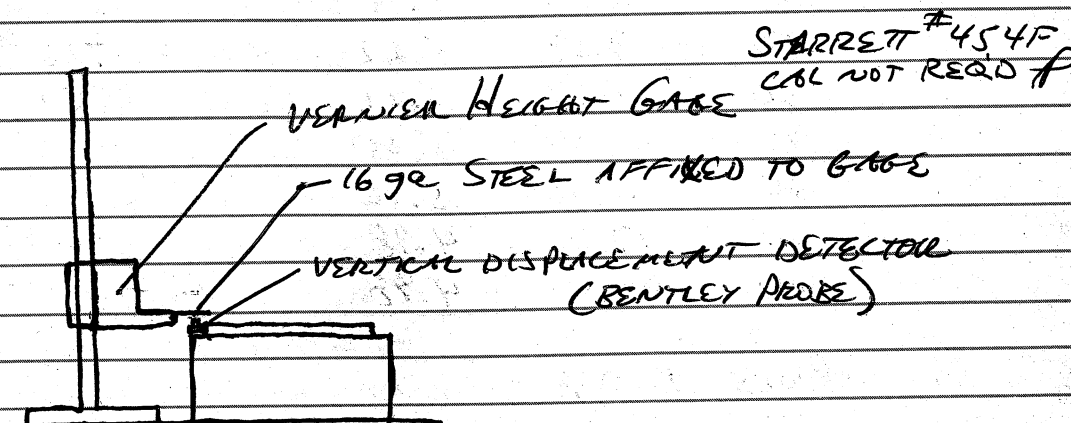 STARRETT #454F
CAL NOT REQ'D
VERNIER HEIGHT GAGE
16 ga STEEL AFFIXED TO GAGE
VERTICAL DISPLACEMENT DETECTOR
(BENTLEY PROBE)